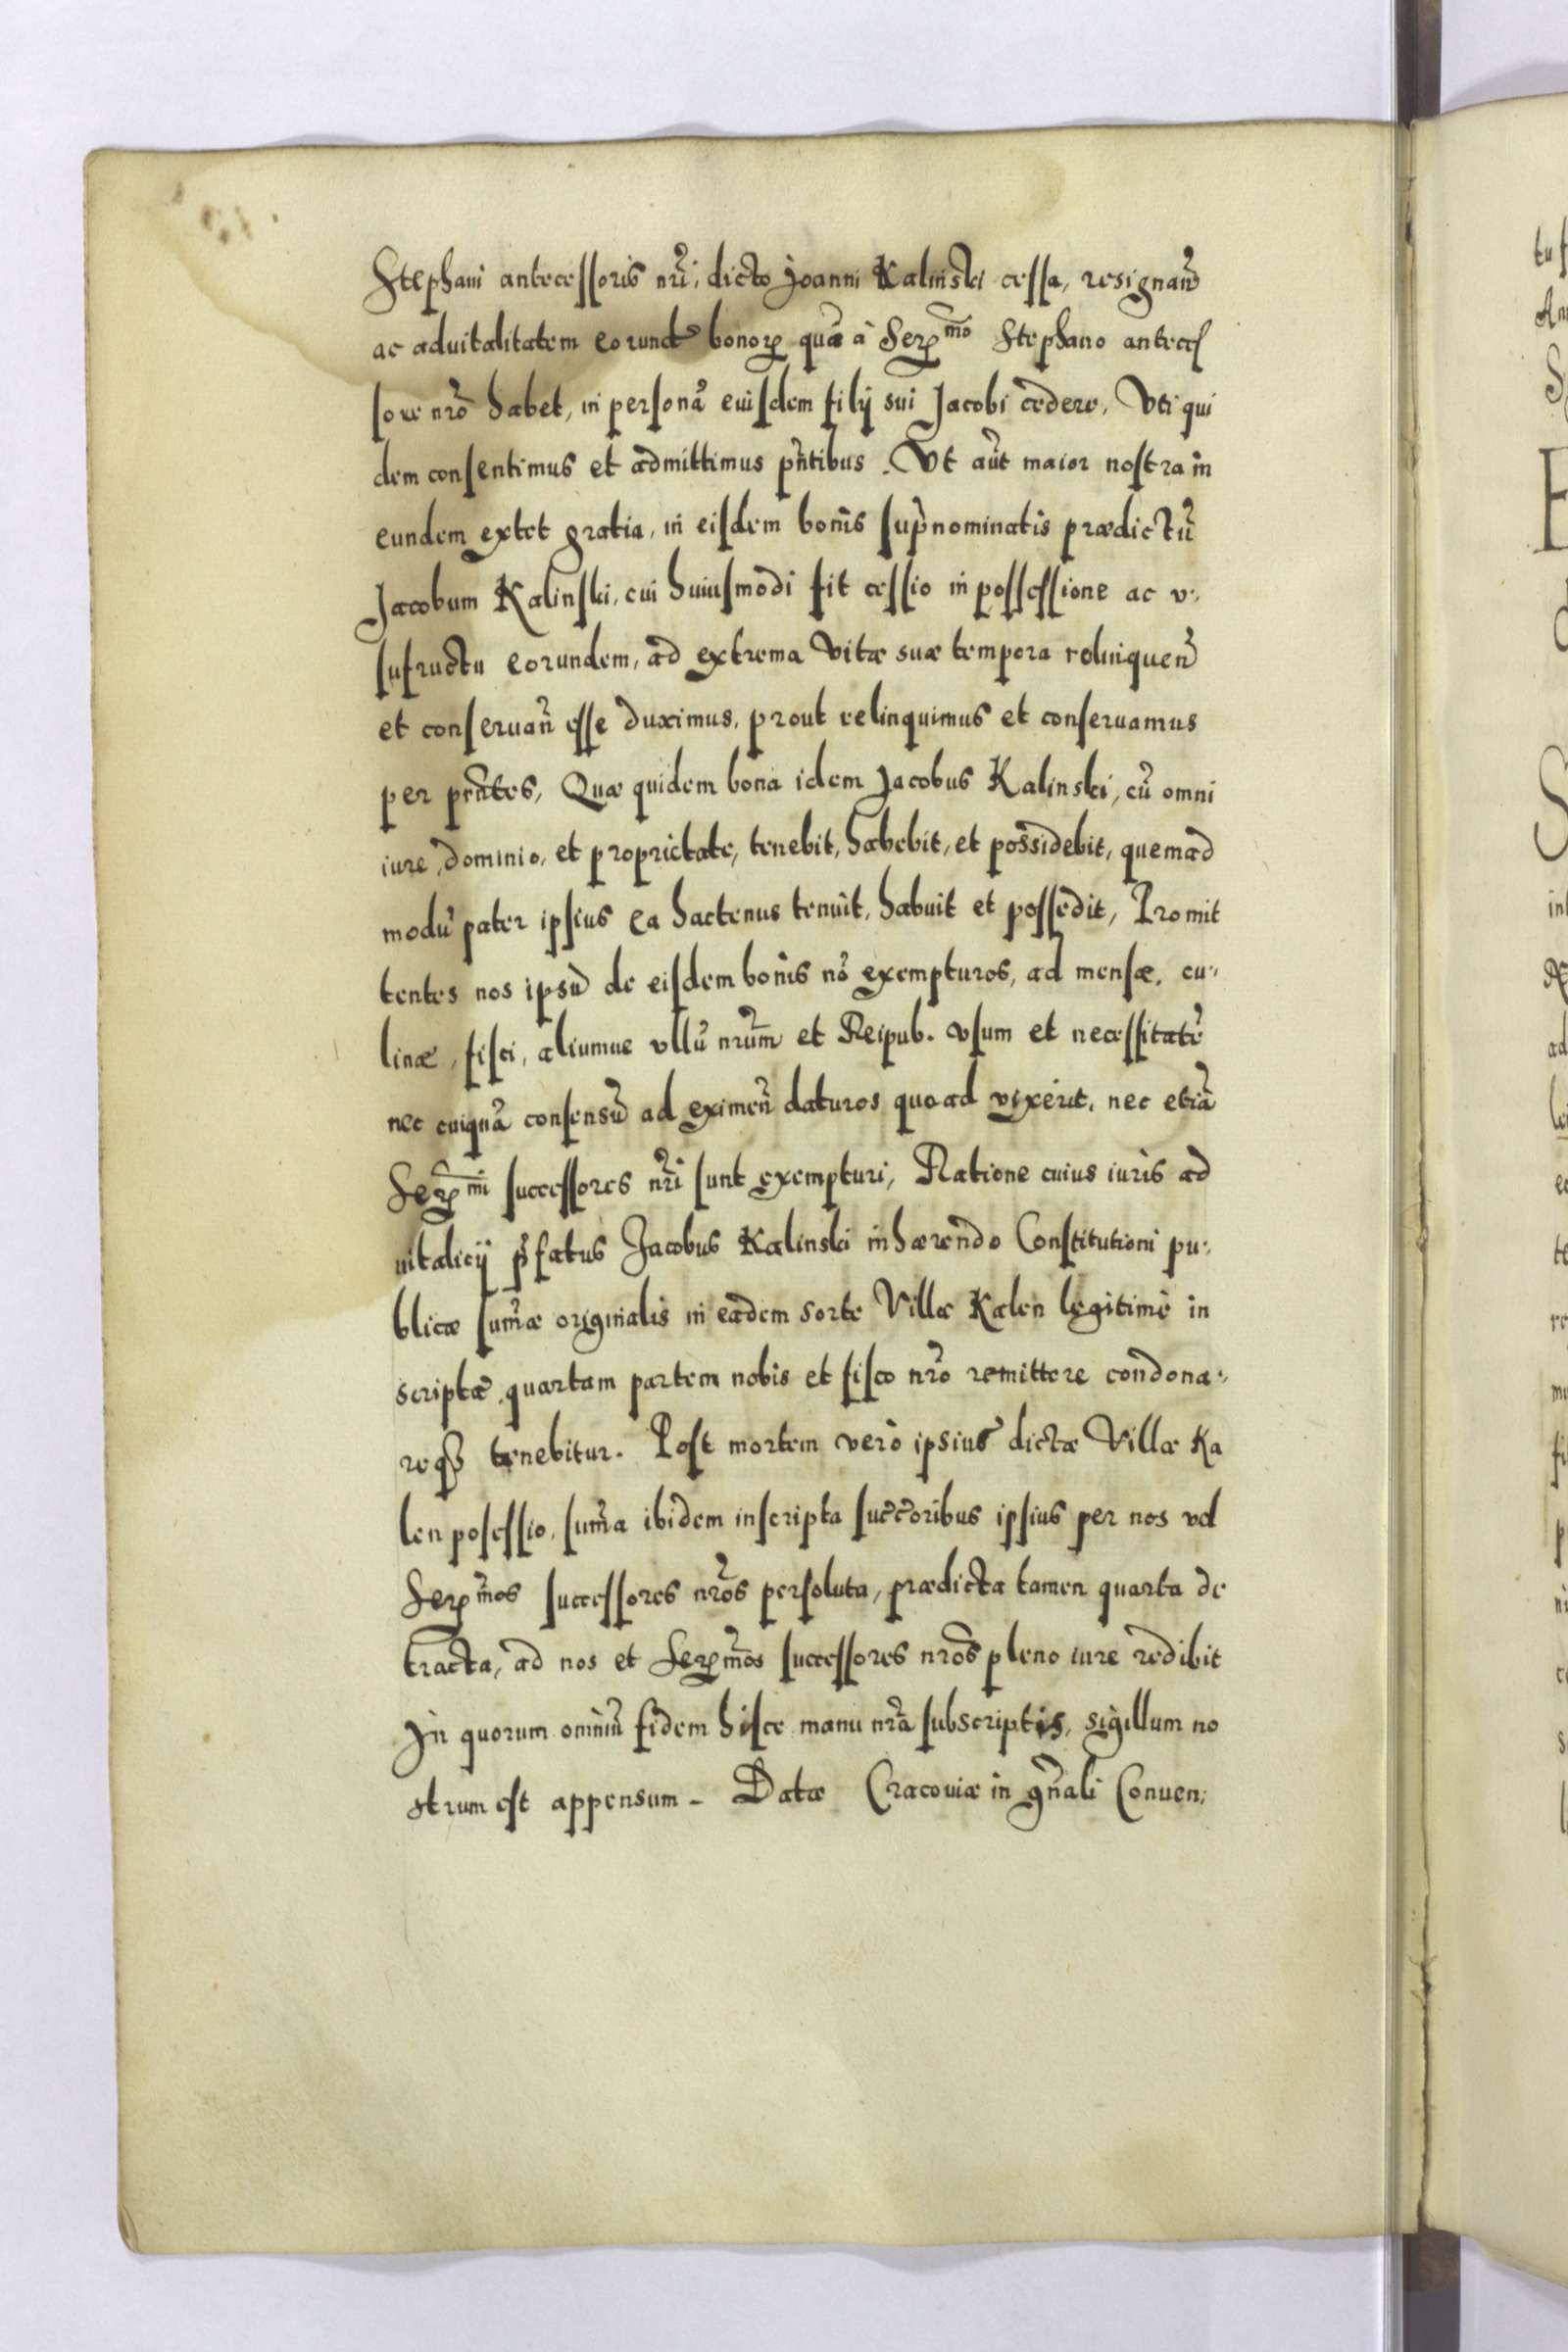 Stephani antecessoris nr̃i, dicto Joanni Kalinski cessa, resignañd
ac aduitalitatem eorundẽ bonorꝝ quã à Serꝝ^mo Stephano anteces
sore nr̃o habet, in personã euisdem filij sui Jacobi cedere, Vti qui
dem consentimus et admittimus pñtibus. Vt aũt maior nostra in
eundem extet gratia, in eisdem bonis sup̃nominatis prædictũ
Jacobum Kalinski, cui huiusmodi fit cessio in possessione ac v.,
sufructu eorundem, ad extrema Vitæ suæ tempora relinquen̄
et conseruañ esse duximus, prout relinquimus et conseruamus
per pr̃ntes, Quæ quidem bona idem Jacobus Kalinski, cũ omni
iure, dominio, et proprietate, tenebit, habebit, et possidebit, quemad
modũ pater ipsius ea hactenus tenuit, habuit et possedit, Promit
tentes nos ipsũ de eisdem bonis nõ exempturos, ad mensæ, cu.,
linæ, fisci, aliumue vllũ nr̃um et Reipub. vsum et necessitatẽ
nec cuiquã consensũ ad eximeñ daturos quoad vixerit, nec etiã
Serꝝ^mi successores nr̃i sunt exempturi, Ratione cuius iuris ad
uitalicij p̃fatus Jacobus Kalinski inhærendo Constitutioni pu.,
blicæ sum̃æ originalis in eadem sorte Villæ Kalen legitimè in
scriptæ, quartam partem nobis et fisco nr̃o remittere condona.,
reqꝫ tenebitur. Post mortem verò ipsius dictæ Villæ Ka
len posessio, sum̃a ibidem inscripta succc̃oribus ipsius per nos vel
Serꝝ^mos successores nr̃os persoluta, prædicta tamen quarta de
tracta, ad nos et Serꝝ^mos successores nr̃os pleno iure redibit
In quorum omniũ fidem hisce manu nr̃a subscriptis, sigillum no
strum est appensum - Datæ Cracouiæ in gñali Conuen,